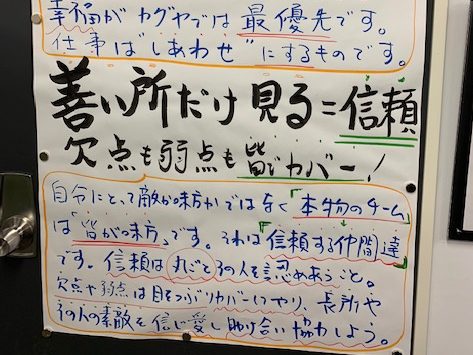 幸福がカグヤでは最優先です。
仕事は"しあわせ"にするものです。
善い所だけ見る=信頼
欠点も弱点も皆でカバー!
自分にとって敵か味方かではなく「本物のチーム」
は「皆が味方」です。それは「信頼する仲間達」
です。信頼は丸ごとその人を認めあうこと。
欠点や弱点は目をつぶりカバーしてやり、長所や
その人の素敵を信じ愛し助け合い協力しよう。